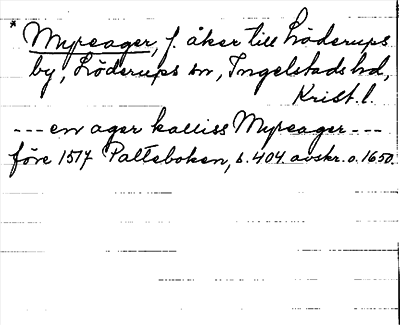 * Myreager, f. åker till Löderups
by, Löderups sn, Ingelstads hd,
Krist. l.
--- en ager kalliss Myreager ---
före 1517 Palteboken, s. 404 avskr. o. 1650.